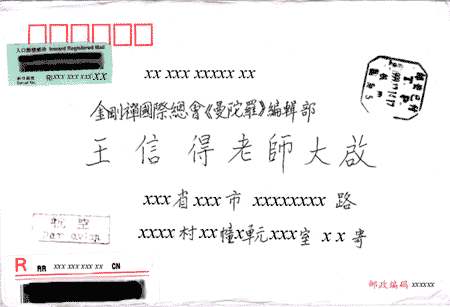 入口掛號郵件 Inward Registered Mail
Serial No. R xxx xxx xxx xx
xx xxx xxxxx xx
T. P.
金剛禪國際總會《曼陀羅》編輯部
王信得老師大啟
xxx省xxx市 xxxxxxxx 路
xxxx 村xx幢x單元xxx室 x x 寄
航空
Par avion
R RR xxx xxx xxx xx CN
邮政编码 xxxxxx